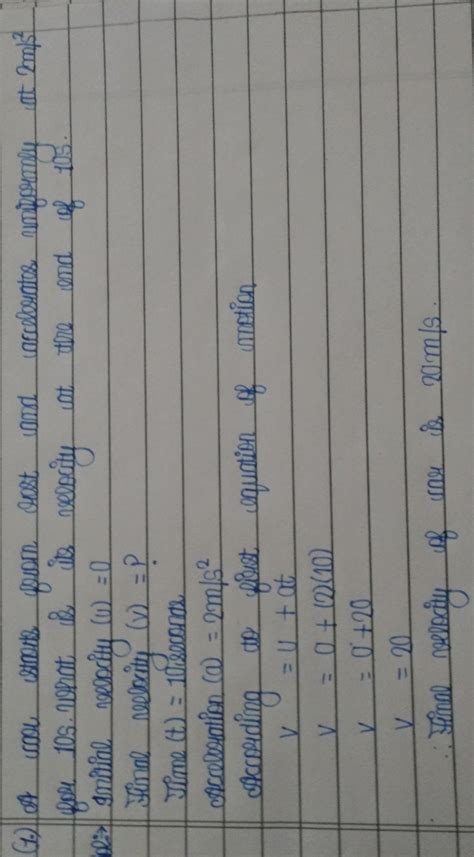 (1.) A car starts from rest and accelerates uniformly at 2m/s²
for 10s. What is its velocity at the end of 10s.
Initial velocity (u) = 0
Final velocity (v) = ?
Time (t) = 10 second
Acceleration (a) = 2m/s²
According to first equation of motion
v = u + at
v = 0 + (2)(10)
v = 0 + 20
v = 20
∴ Final velocity of car is 20m/s.